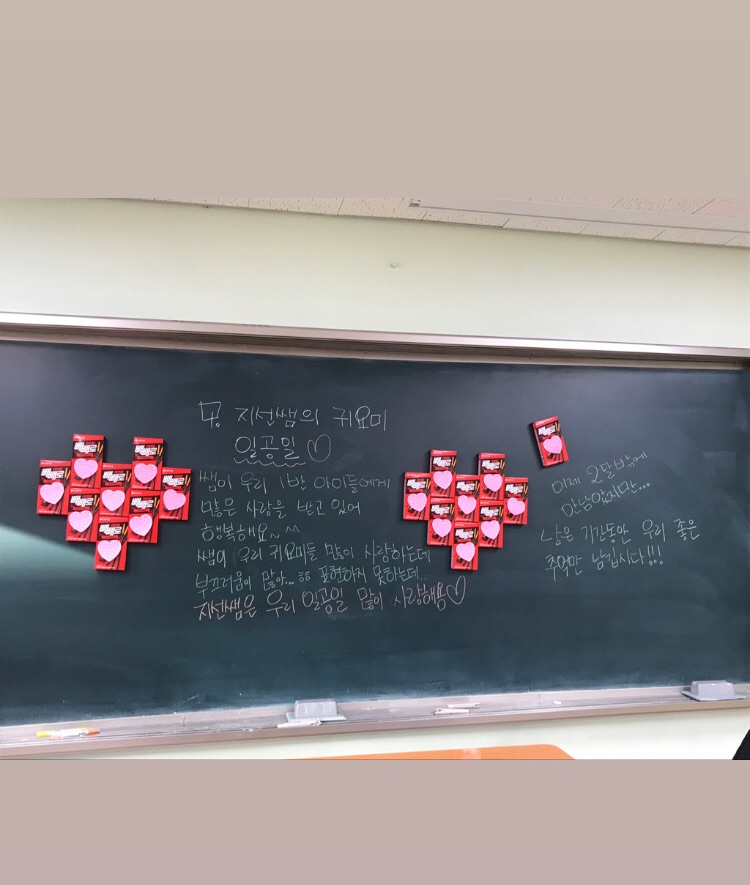 지선쌤의 귀요미
일공일♡
쌤이 우리 1반 아이들에게
많은 사랑을 받고 있어
행복해요~ ^^
쌤이 우리 귀요미들 많이 사랑하는데
부끄러움이 많아... ㅎㅎ 표현하지 못하는데...
지선쌤은 우리 일공일 많이 사랑해용♡
이제 2달밖에
안남았지만...
남은 기간동안 우리 좋은
추억만 남깁시다!!!
빼빼로